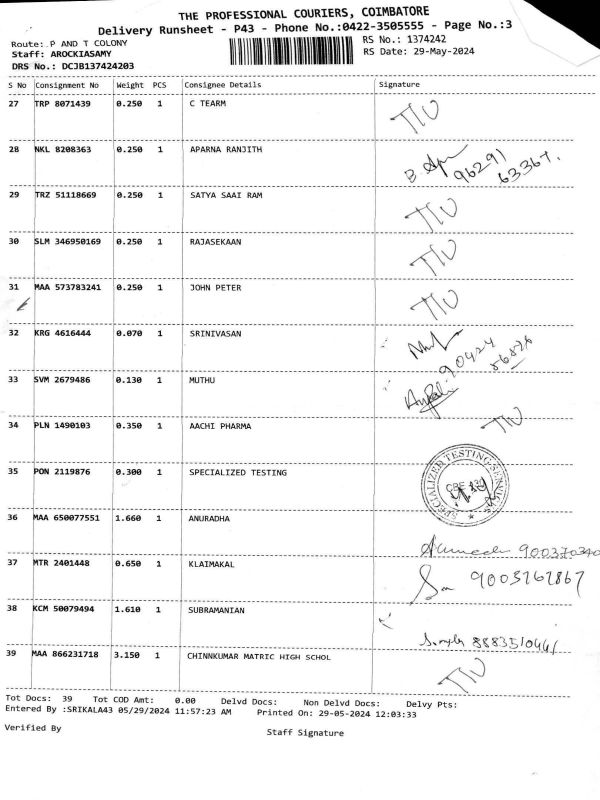 THE PROFESSIONAL COURIERS, COIMBATORE
Delivery Runsheet - P43 - Phone No.:0422-3505555 - Page No.:3
Route: P AND T COLONY
RS No.: 1374242
Staff: AROCKIASAMY
RS Date: 29-May-2024
DRS No.: DCJB137424203
S No Consignment No Weight PCS Consignee Details Signature
27 TRP 8071439 0.250 1 C TEARM
28 NKL 8208363 0.250 1 APARNA RANJITH
96291
63367.
29 TRZ 51118669 0.250 1 SATYA SAAI RAM
30 SLM 346950169 0.250 1 RAJASEKAAN
31 MAA 573783241 0.250 1 JOHN PETER
32 KRG 4616444 0.070 1 SRINIVASAN
90424
33 SVM 2679486 0.130 1 MUTHU
34 PLN 1490103 0.350 1 AACHI PHARMA
35 PON 2119876 0.300 1 SPECIALIZED TESTING
SPECIALIZED TESTING SERVICE
36 MAA 650077551 1.660 1 ANURADHA
37 MTR 2401448 0.650 1 KLAIMAKAL
9003767867
38 KCM 50079494 1.610 1 SUBRAMANIAN
39 MAA 866231718 3.150 1 CHINNKUMAR MATRIC HIGH SCHOL
Tot Docs: 39 Tot COD Amt: 0.00 Delvd Docs: Non Delvd Docs: Delvy Pts:
Entered By :SRIKALA43 05/29/2024 11:57:23 AM Printed On: 29-05-2024 12:03:33
Verified By
Staff Signature